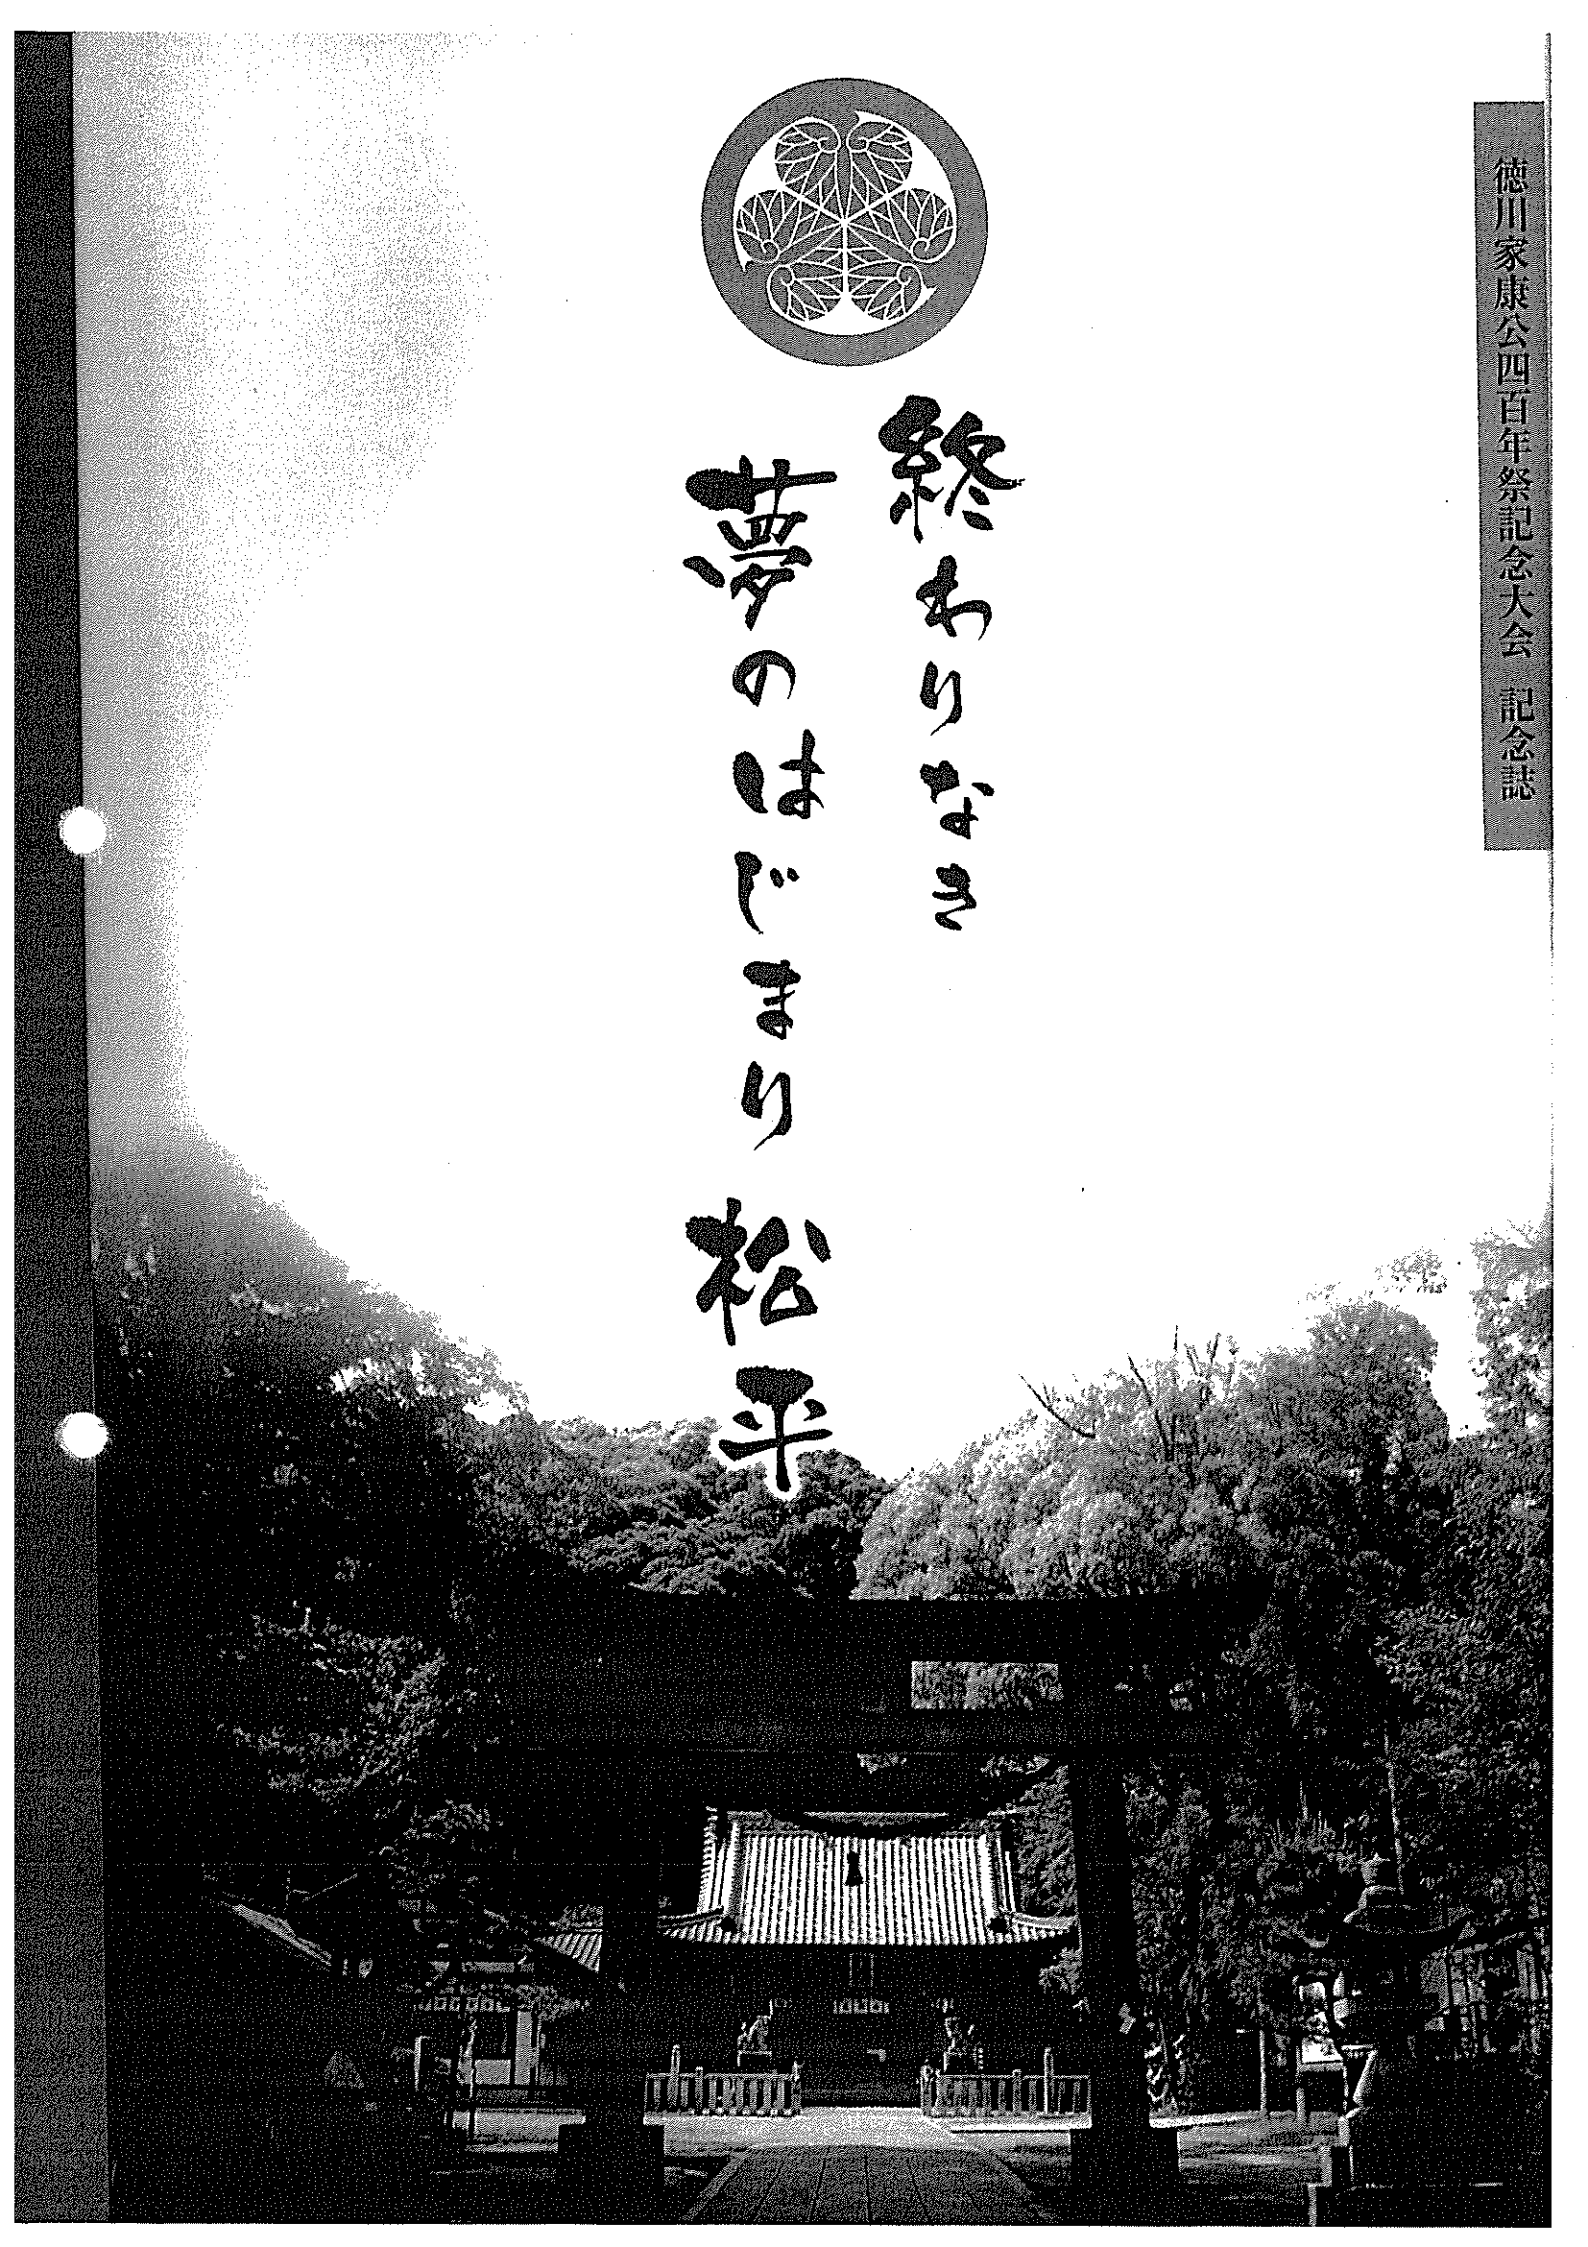 徳川家康公四百年祭記念大会 記念誌
終わりなき
夢のはじまり 松平